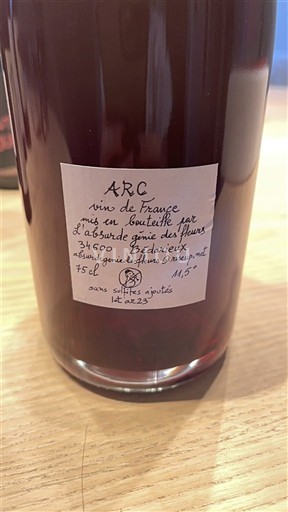 ARC
vin de France
mis en bouteille par
L'absurde génie des fleurs
34600 Bédarieux
75cl 11,5°
sans sulfites ajoutés
lot az23